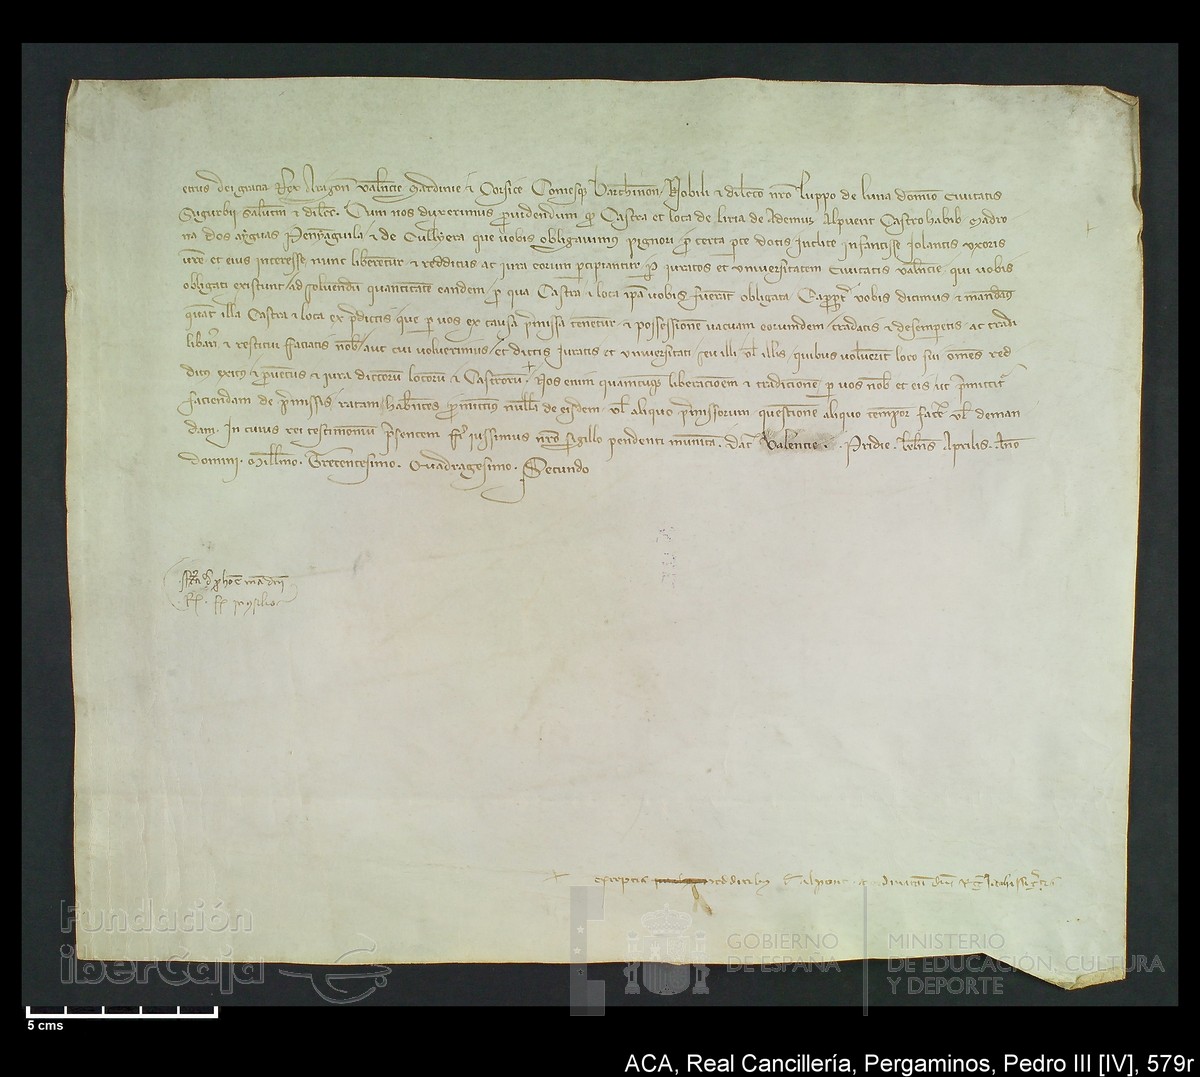 etrus dei gracia Rex Aragon Valencie Sardinie et Corsice Comesq Barchinon Nobili et dilecto nro Luppo de luna domino Civitatis
Sugurbii salutem et dilec. Cum nos duxerimus providendum qd Castra et loca de liria de Ademuz Alpuent Castrohabib Madro
na dos aygues Penyaguila et de Cullyera que vobis obligavimus pignori pro certa parte dotis inclite infantisse Iolantis uxoris
vre et eius interesse nunc liberetur et redditus ac iura eorum percipiantur per iuratos et universitatem Civitatis Valencie qui vobis
obligati existunt ad solvendum quantitatem eandem pro qua Castra et loca ipa vobis fuerunt obligata Eapropter vobis dicimus et mandamus
quatenus illa Castra et loca ex predictis que per vos ex causa premissa tenetur et possessionem vacuam eorumdem tradatis et desemperetis ac tradi
liberari et restitui faciatis nobis aut cui voluerimus et dictis Iuratis et universitati seu illi vel illis quibus voluerit loco sui omnes red
ditus exitus et proventus et iura dictorum locorum et Castrorum. Nos enim quamcumque liberacionem et tradicionem per vos nobis et eis ut premittitur
faciendam de premissis ratam habentes promittimus nulli de eisdem vel aliquo premissorum questionem aliquo tempore facere vel deman
dam. In cuius rei testimonium presentem fieri iussimus nro sigillo pendenti munitam. Dat Valencie. Pridie. kalendas Aprilis. Anno
domini. Millesimo. Trecentesimo. Quadragesimo. Secundo
exceptis redditibus Alpont
Fundación
iberCaja
GOBIERNO
DE ESPAÑA
MINISTERIO
DE EDUCACIÓN, CULTURA
Y DEPORTE
5 cms
ACA, Real Cancillería, Pergaminos, Pedro III [IV], 579r